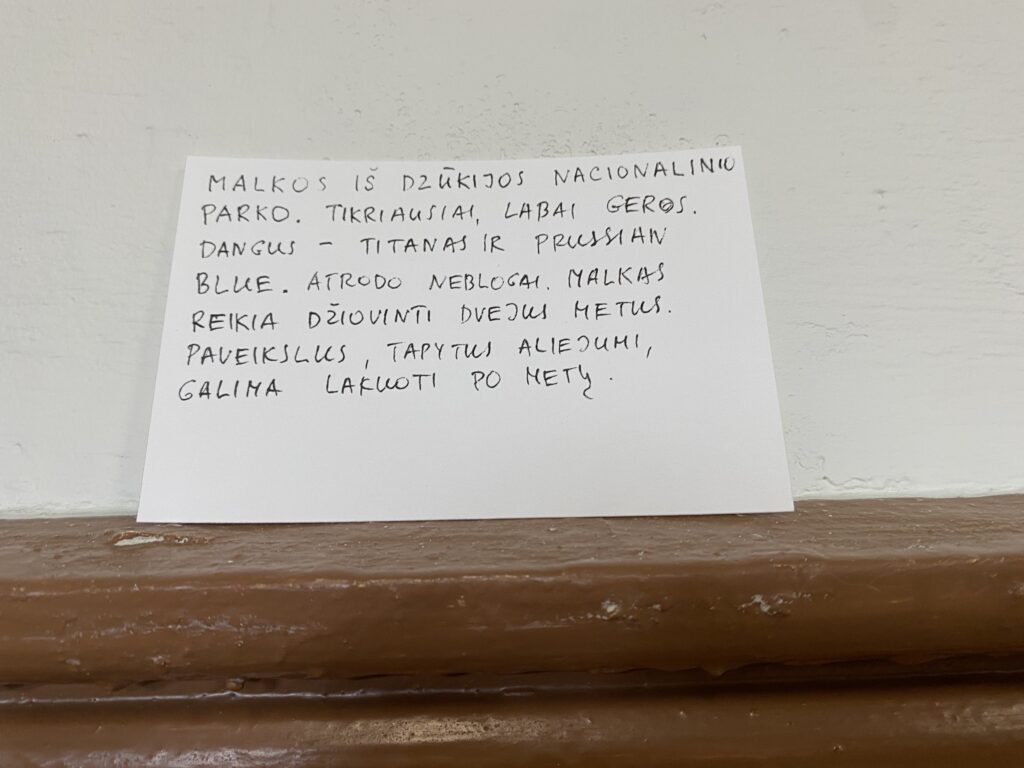 MALKOS IŠ DZŪKIJOS NACIONALINIO
PARKO. TIKRIAUSIAI, LABAI GEROS.
DANGUS – TITANAS IR PRUSSIAN
BLUE. ATRODO NEBLOGAI. MALKAS
REIKIA DŽIOVINTI DVEJUS METUS.
PAVEIKSLUS, TAPYTUS ALIEJUMI,
GALIMA LAKUOTI PO METŲ.